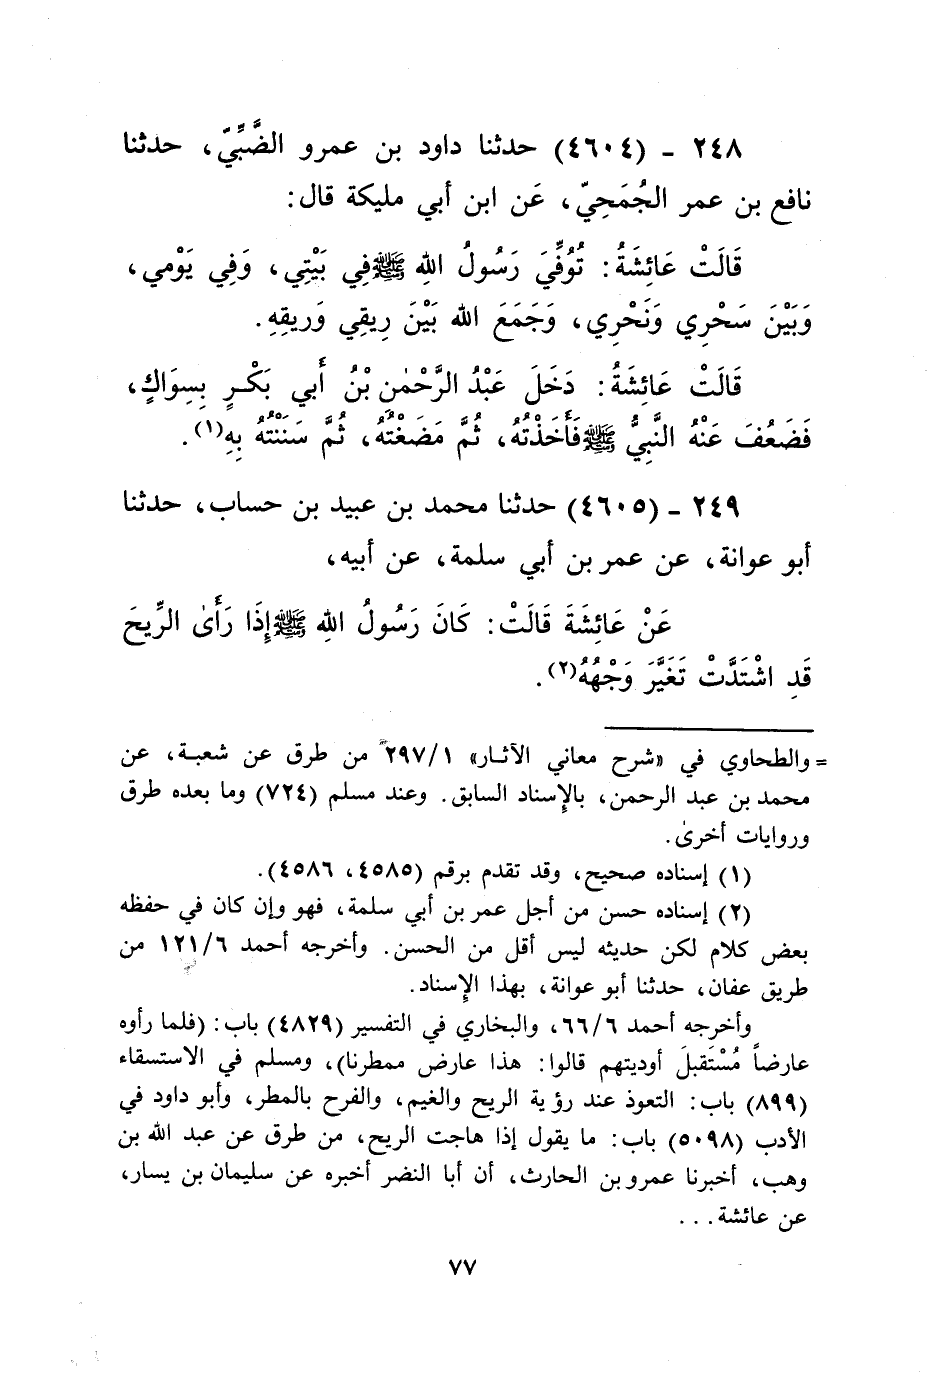 ٢٤٨ - (٤٦٠٤) حدثنا داود بن عمرو الضَّبِّيّ، حدثنا
نافع بن عمر الجُمَحِيّ، عَن ابن أبي مليكة قال:
قَالَتْ عَائِشَةُ: تُوُفِّيَ رَسُولُ اللهِ ﷺ فِي بَيْتِي، وَفِي يَوْمي،
وَبَيْنَ سَحْرِي وَنَحْرِي، وَجَمَعَ الله بَيْنَ رِيقِي وَريقِهِ.
قَالَتْ عَائِشَةُ: دَخَلَ عَبْدُ الرَّحْمٰنِ بْنُ أَبي بَكْرٍ بِسِوَاكٍ،
فَضَعُفَ عَنْهُ النَّبِيُّ ﷺ فَأَخَذْتُهُ، ثُمَّ مَضَغْتُهُ، ثُمَّ سَنَنْتُهُ بِهِ(١).
٢٤٩ - (٤٦٠٥) حدثنا محمد بن عبيد بن حساب، حدثنا
أبو عوانة، عن عمر بن أبي سلمة، عن أبيه،
عَنْ عَائِشَةَ قَالَتْ: كَانَ رَسُولُ اللهِ ﷺ إِذَا رَأَىٰ الرِّيحَ
قَدِ اشْتَدَّتْ تَغَيَّرَ وَجْهُهُ(٢).
= والطحاوي في «شرح معاني الآثار» ٢٩٧/١ من طرق عن شعبة، عن
محمد بن عبد الرحمن، بالإسناد السابق. وعند مسلم (٧٢٤) وما بعده طرق
وروايات أخرىٰ.
(١) إسناده صحيح، وقد تقدم برقم (٤٥٨٥، ٤٥٨٦).
(٢) إسناده حسن من أجل عمر بن أبي سلمة، فهو وإن كان في حفظه
بعض كلام لكن حديثه ليس أقل من الحسن. وأخرجه أحمد ١٢١/٦ من
طريق عفان، حدثنا أبو عوانة، بهذا الإسناد.
وأخرجه أحمد ٦٦/٦، والبخاري في التفسير (٤٨٢٩) باب: (فلما رأوه
عارضاً مُسْتَقبلَ أوديتهم قالوا: هذا عارض ممطرنا)، ومسلم في الاستسقاء
(٨٩٩) باب: التعوذ عند رؤية الريح والغيم، والفرح بالمطر، وأبو داود في
الأدب (٥٠٩٨) باب: ما يقول إذا هاجت الريح، من طرق عن عبد الله بن
وهب، أخبرنا عمرو بن الحارث، أن أبا النضر أخبره عن سليمان بن يسار،
عن عائشة...
٧٧